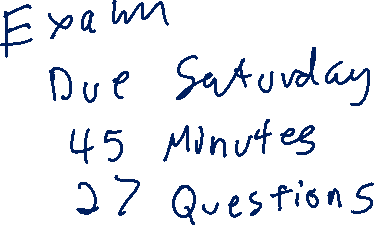 Exam
Due Saturday
45 Minutes
27 Questions